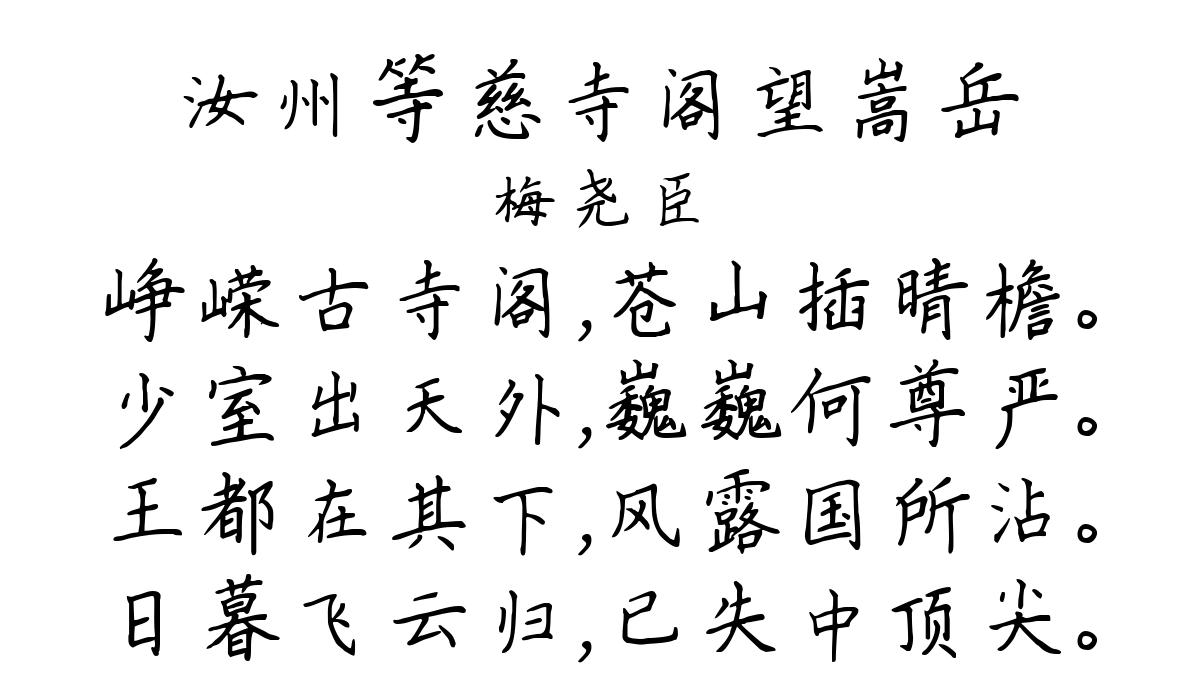 汝州等慈寺阁望嵩岳
梅尧臣
峥嵘古寺阁,苍山插晴檐。
少室出天外,巍巍何尊严。
王都在其下,风露国所沾。
日暮飞云归,已失中顶尖。